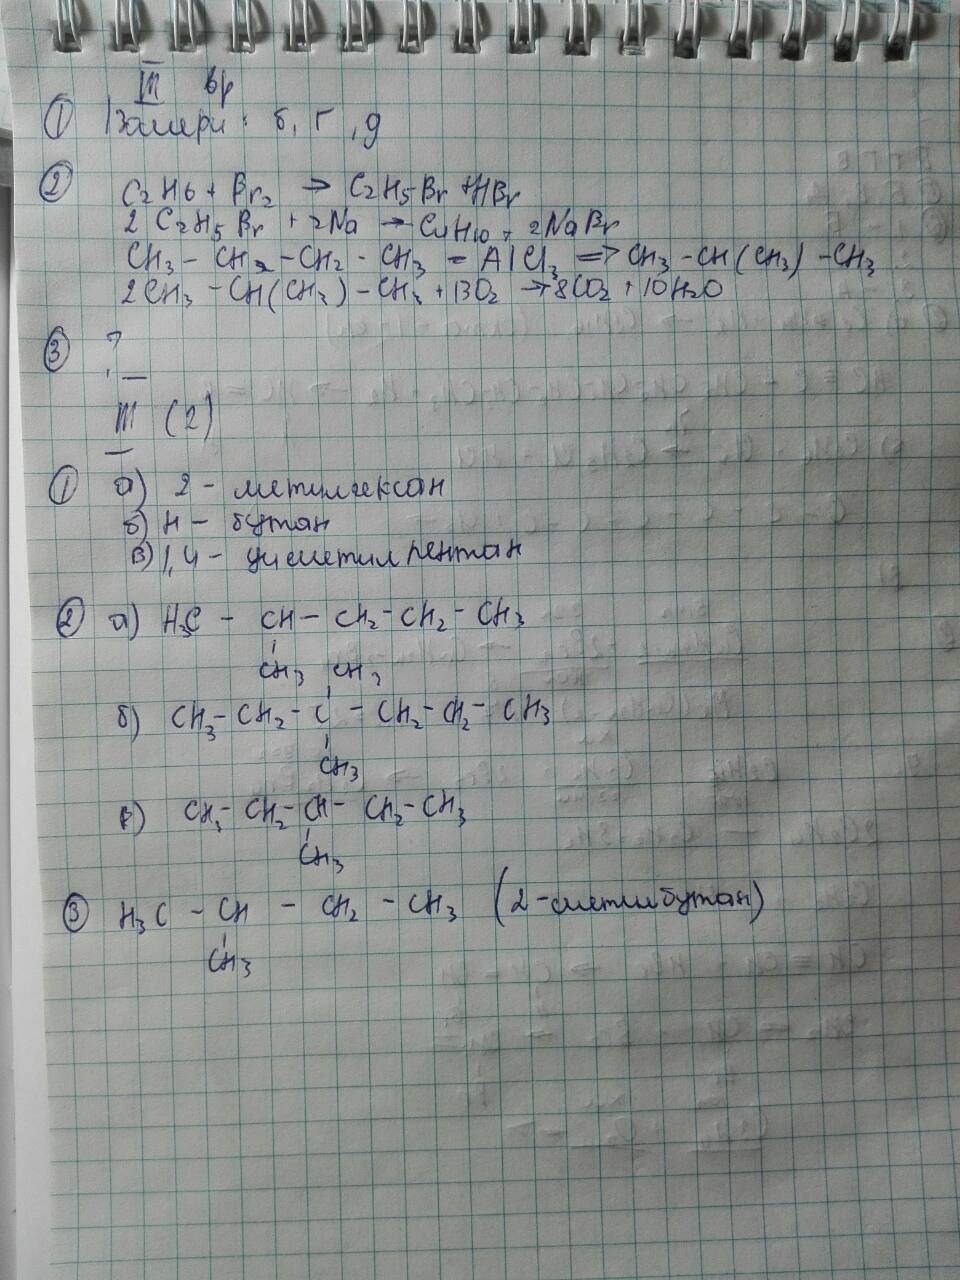 III вр
① Ізомери: б, г, д
② C₂H₆ + Br₂ → C₂H₅Br + HBr
2 C₂H₅Br + 2Na → C₄H₁₀ + 2NaBr
CH₃ – CH₂ – CH₂ – CH₃ – AlCl₃ => CH₃ – CH(CH₃) – CH₃
2CH₃ – CH(CH₃) – CH₃ + 13O₂ → 8CO₂ + 10H₂O
③ ?
III (2)
① а) 2 – метилгексан
б) н – бутан
в) 1,4 – диметилпентан
② а) H₃C – CH – CH₂ – CH₂ – CH₃
CH₃ CH₃
б) CH₃ – CH₂ – C – CH₂ – CH₂ – CH₃
CH₃
в) CH₃ – CH₂ – CH – CH₂ – CH₃
CH₃
③ H₃C – CH – CH₂ – CH₃ (2-метилбутан)
CH₃